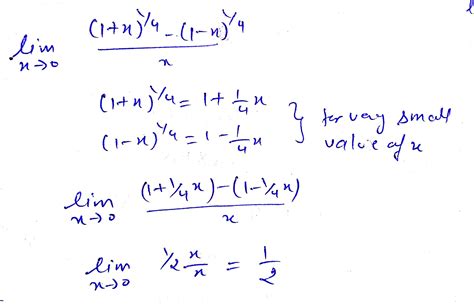 lim x→0 ((1+x)^1/4 - (1-x)^1/4) / x
(1+x)^1/4 = 1 + 1/4 x
(1-x)^1/4 = 1 - 1/4 x } for very small value of x
lim x→0 ((1+1/4 x) - (1-1/4 x)) / x
lim x→0 1/2 x/x = 1/2